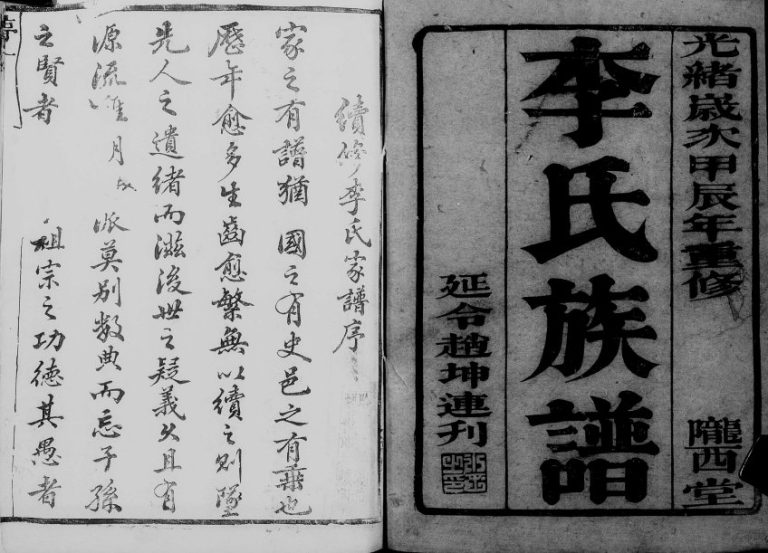 光緒歲次甲辰年重修
隴西堂
李氏族譜
延令趙坤連刊
續修李氏家譜序
家之有譜猶國之有史邑之有乘也
歷年愈多生齒愈繁無以續之則墜
先人之遺緒而滋後世之疑義久且有
源流 派莫別數典而忘子孫
之賢者祖宗之功德其愚者